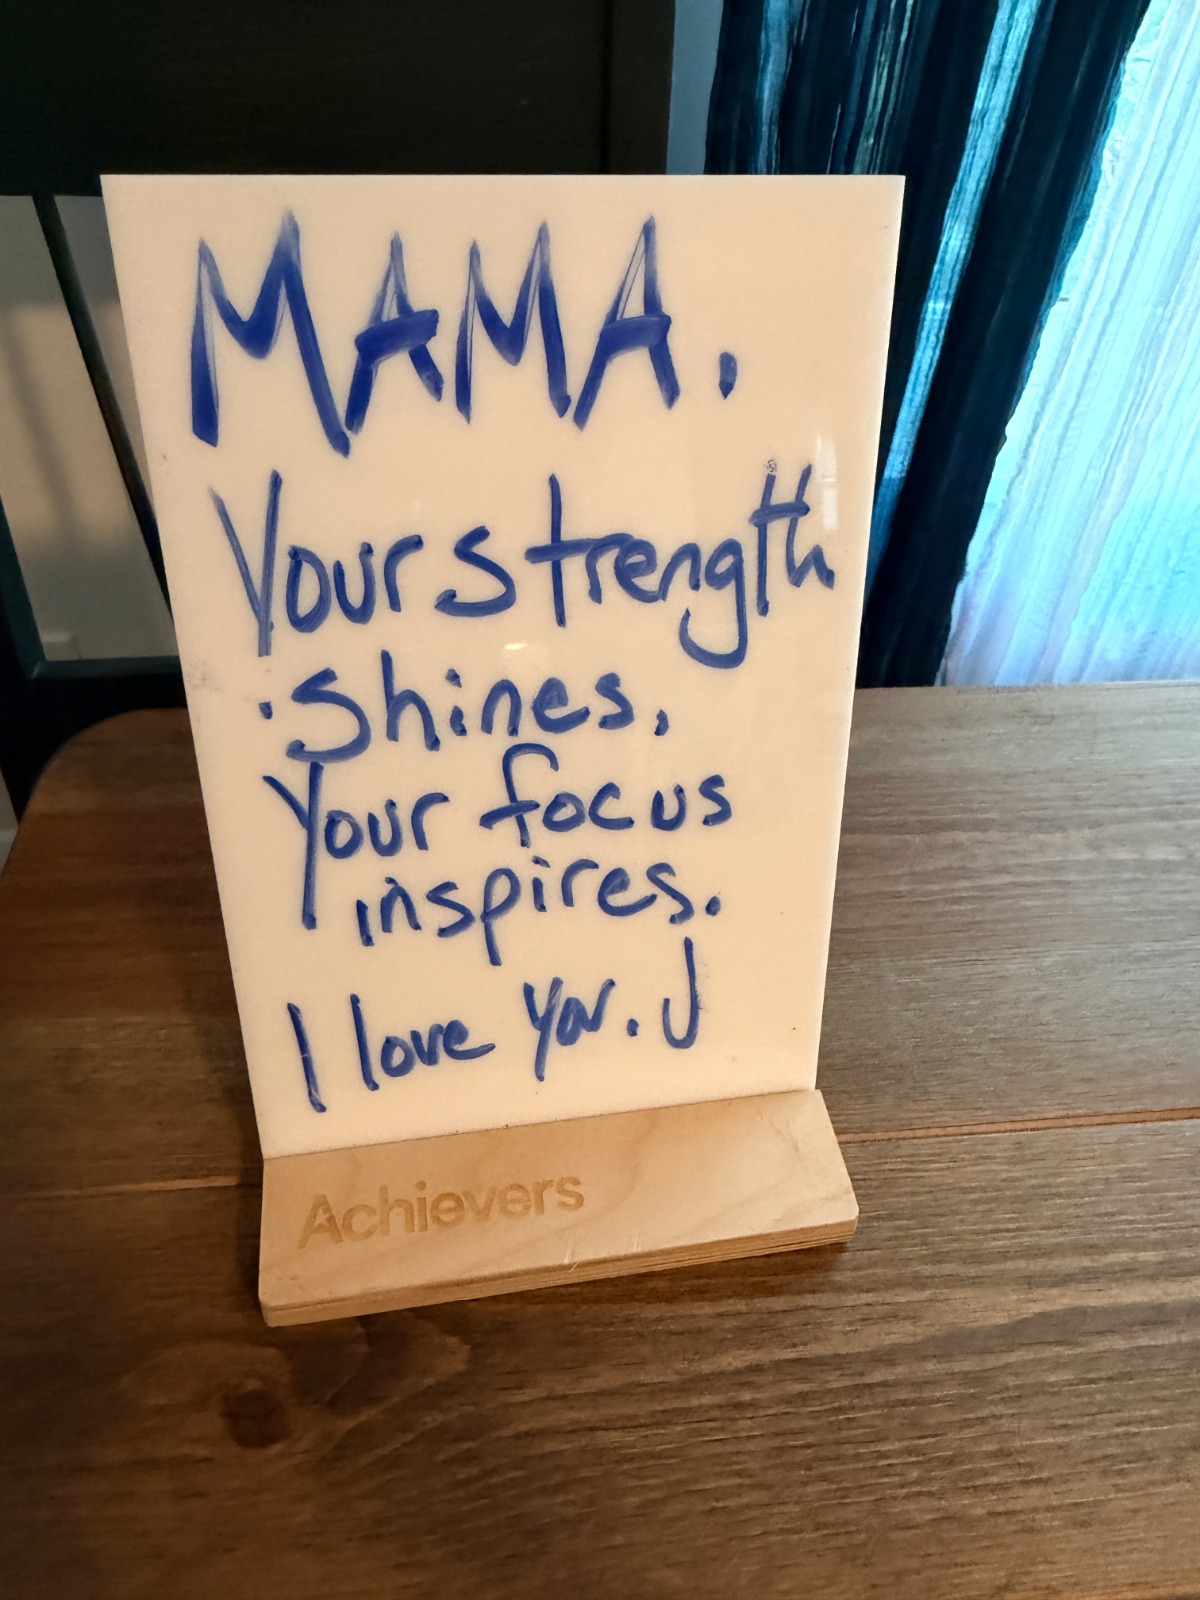 MAMA.
Your strength
Shines.
Your focus
inspires.
I love you. J
Achievers